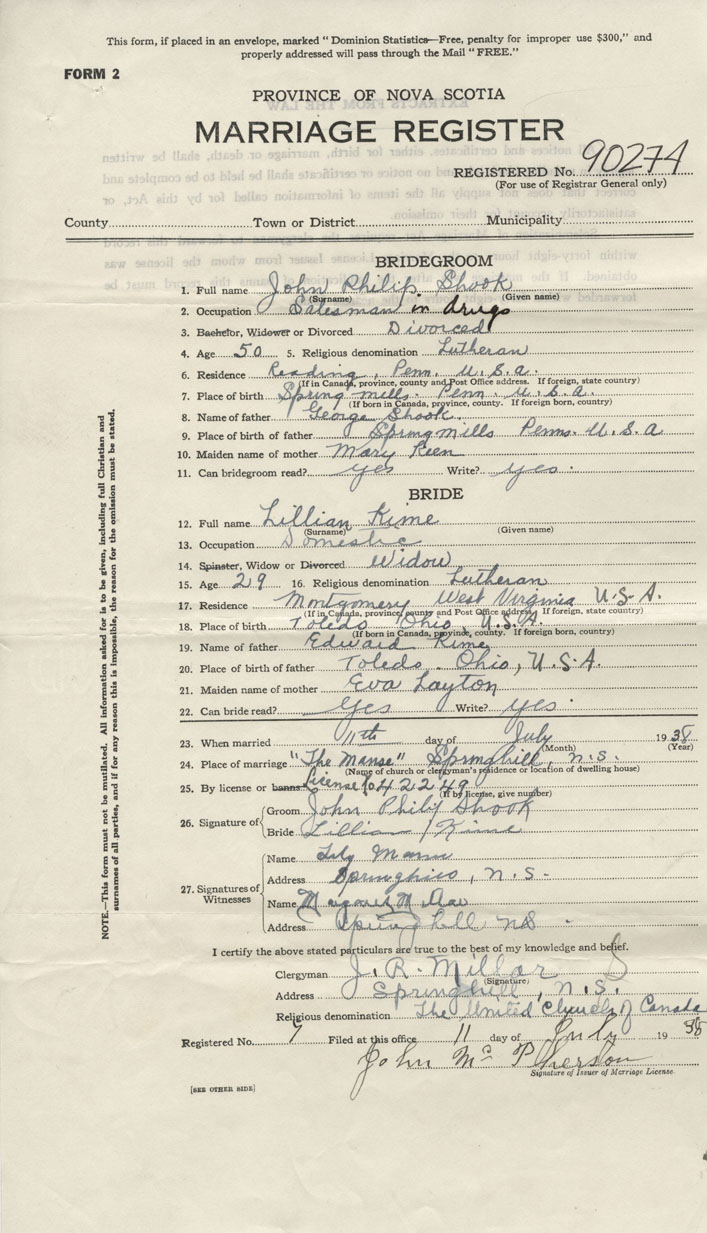 This form, if placed in an envelope, marked "Dominion Statistics—Free, penalty for improper use $300," and
properly addressed will pass through the Mail "FREE."
FORM 2
PROVINCE OF NOVA SCOTIA
MARRIAGE REGISTER
REGISTERED No. 90274
(For use of Registrar General only)
County Town or District Municipality
BRIDEGROOM
1. Full name John Philip Shook
(Surname) (Given name)
2. Occupation Salesman in drugs
3. Bachelor, Widower or Divorced Divorced
4. Age 50 5. Religious denomination Lutheran
6. Residence Reading, Penn. U.S.a.
(If in Canada, province, county and Post Office address. If foreign, state country)
7. Place of birth Spring mills. Penn. U.S.a.
(If born in Canada, province, county. If foreign born, country)
8. Name of father George Shook.
9. Place of birth of father Springmills Penns. U.S.A
10. Maiden name of mother Mary Keen
11. Can bridegroom read? yes Write? yes.
BRIDE
12. Full name Lillian Kime
(Surname) (Given name)
13. Occupation Domestic
14. Spinster, Widow or Divorced Widow
15. Age 29 16. Religious denomination Lutheran
17. Residence Montgomery West Virginia U.S.A.
(If in Canada, province, county and Post Office address. If foreign, state country)
18. Place of birth Toledo Ohio, U.S.A.
(If born in Canada, province, county. If foreign born, country)
19. Name of father Edward Kime
20. Place of birth of father Toledo. Ohio, U.S.A.
21. Maiden name of mother Eva Layton
22. Can bride read? Yes Write? yes.
23. When married 11th day of July 1938
(Month) (Year)
24. Place of marriage "The Manse" Springhill, n.s.
(Name of church or clergyman's residence or location of dwelling house)
25. By license or banns License 042249
(If by license, give number)
26. Signature of Groom John Philip Shook
Bride Lillian Kime
27. Signatures of Witnesses
Name Lily Mann
Address Springhill, n.s.
Name Margaret M.
Address Springhill NS
I certify the above stated particulars are true to the best of my knowledge and belief.
Clergyman J. R. Millar
(Signature)
Address Springhill, n.s.
Religious denomination The United Church of Canada
Registered No. 7 Filed at this office 11 day of July 1938
John McPherson
Signature of Issuer of Marriage License.
[SEE OTHER SIDE]
NOTE.—This form must not be mutilated. All information asked for is to be given, including full Christian and
surnames of all parties, and if for any reason this is impossible, the reason for the omission must be stated.